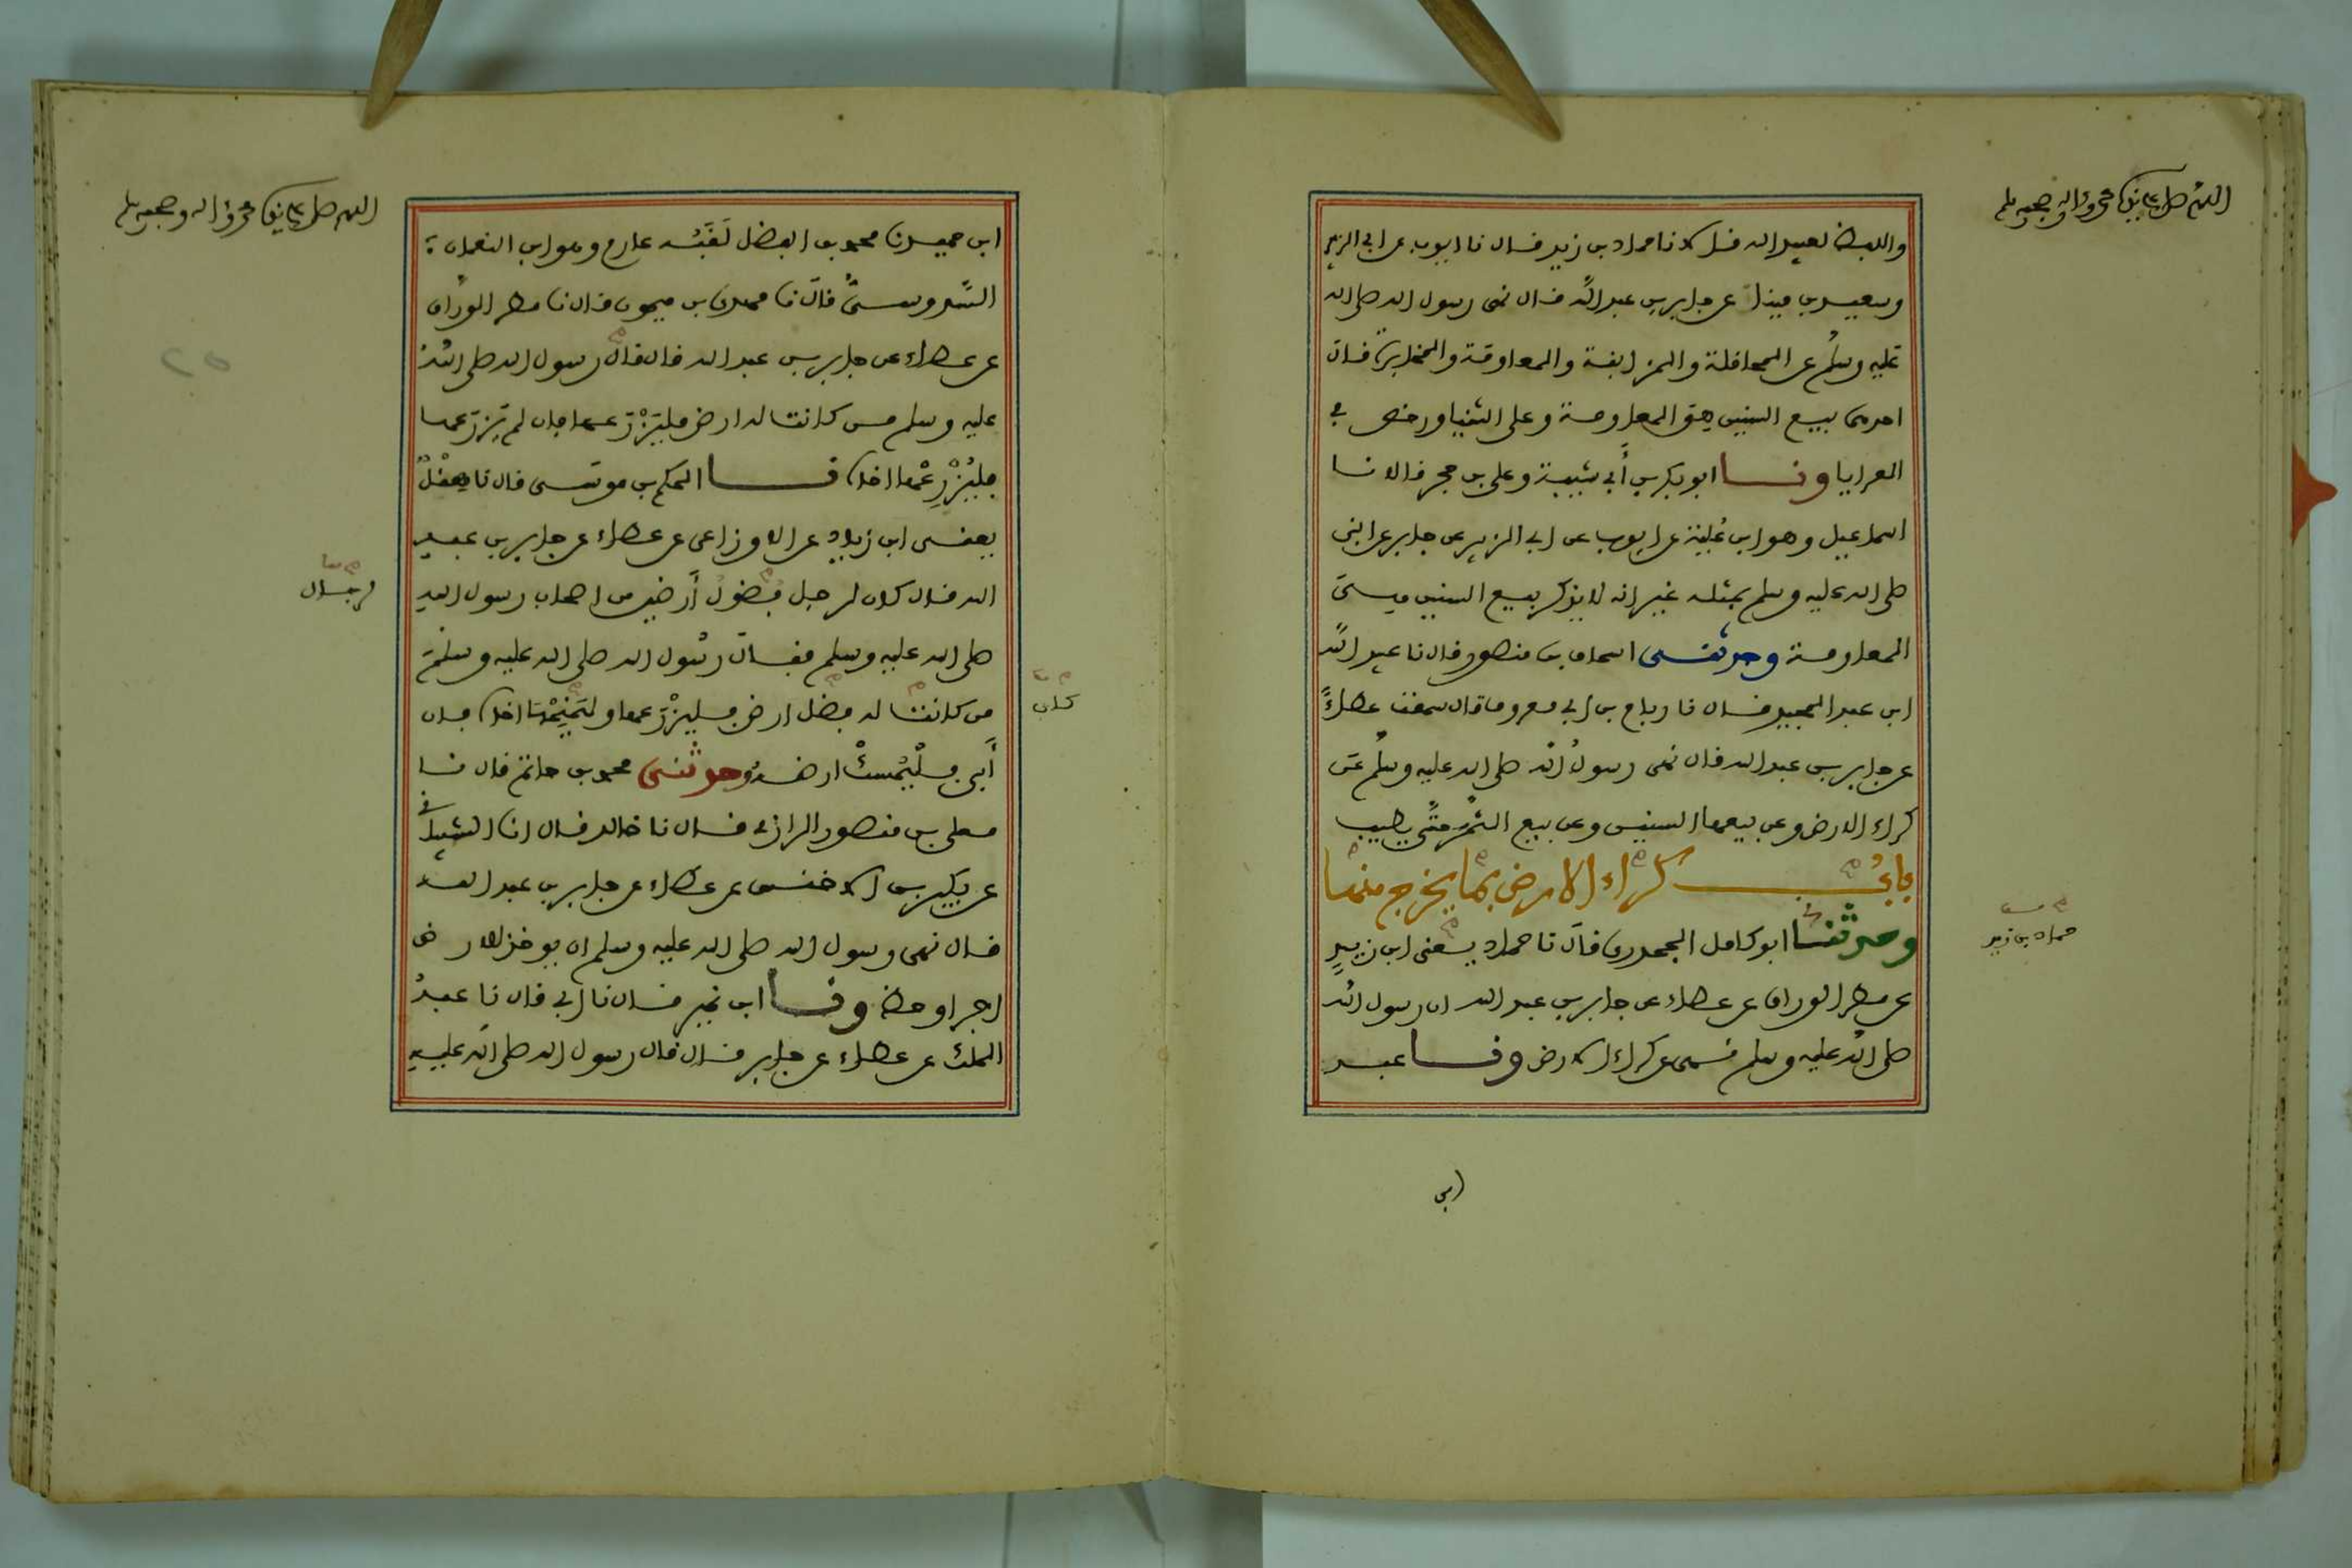 اللهم صل على نبينا محمد واله وصحبه وسلم
واللفظ لعبيد الله فالا نا حماد بن زيد فال نا ايوب عن ابي الزبير
وسعيد بن مينا عن جابر بن عبد الله فال نهى رسول الله صلى الله
عليه وسلم عن المحافلة والمزابنة والمعاومة والمخابرة فال
احدهما بيع السنين هى المعاومة وعلى الثنيا ورخص في
العرايا ونا ابو بكر بن أبي شيبة وعلي بن حجر فالا نا
اسماعيل وهو ابن علية عن ايوب عن ابي الزبير عن جابر عن النبي
صلى الله عليه وسلم بمثله غير انه لا يذكر بيع السنين هى
المعاومة وحدثنى اسحاق بن منصور فال نا عبيد الله
ابن عبد المجيد فال نا رباح بن ابي معروف فال سمعت عطاءً
عن جابر بن عبد الله فال نهى رسولُ الله صلى الله عليه وسلم عن
كراء الارض وعن بيعها السنين وعن بيع الثمر حتى يطيب
بابُ كراء الارض بما يخرج منها
وحدثنا ابو كامل الجحدرى فال نا حماد يعنى ابن زيدٍ
حماد بن زيد
عن مطر الوراق عن عطاء عن جابر بن عبد الله ان رسول الله
صلى الله عليه وسلم نهى عن كراء الارض ونا عبد
ابن
اللهم صل على نبينا محمد واله وصحبه وسلم
ابن حميد نا محمد بن الفضل لَقَبُه عارم وهو ابن النعمان
السَّدوسىُّ فال نا مهدى بن ميمون فال نا مطر الورّاق
عن عطاء عن جابر بن عبد الله فال فال رسول الله صلى الله
عليه وسلم من كانت له ارض فليَزْرَعها فان لم يَزرَعها
فليُزْرِعْها اخاه نا الحكم بن موسى فال نا هِقْلٌ
يعنى ابن زياد عن الاوزاعى عن عطاء عن جابر بن عبد
الله فال كان لرجل فضولُ أرضين من اصحاب رسول الله
لرجال
صلى الله عليه وسلم ففال رسُول الله صلى الله عليه وسلم
من كانت له فضل ارض فليزْرَعها او ليَمْنَحْها اخاه فان
كان
أَبى فلْيُمسكْ ارضه وحدثنى محمد بن حاتم فال نا
معلى بن منصور الرازى فال نا خالد فال انا الشيباني
عن بكير بن الاخنس عن عطاء عن جابر بن عبد الله
فال نهى رسول الله صلى الله عليه وسلم ان يوخذ للارض
اجر او حظ ونا ابن نمير فال نا ابي فال نا عبدُ
الملك عن عطاء عن جابر فال فال رسول الله صلى الله عليه